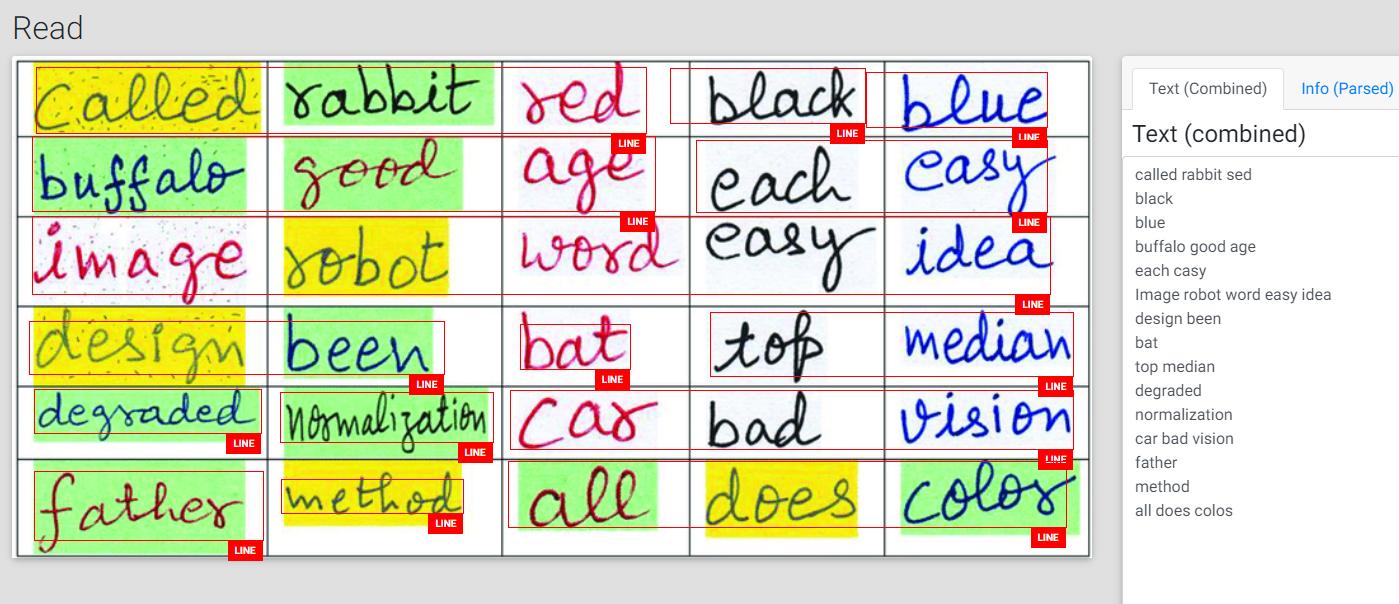 Read
called rabbit red black blue
LINE LINE LINE
buffalo good age each easy
LINE LINE
image robot word easy idea
LINE
design been bat top median
LINE LINE LINE
degraded normalization car bad vision
LINE LINE LINE
father method all does color
LINE LINE LINE
Text (Combined) Info (Parsed)
Text (combined)
called rabbit sed
black
blue
buffalo good age
each casy
Image robot word easy idea
design been
bat
top median
degraded
normalization
car bad vision
father
method
all does colos